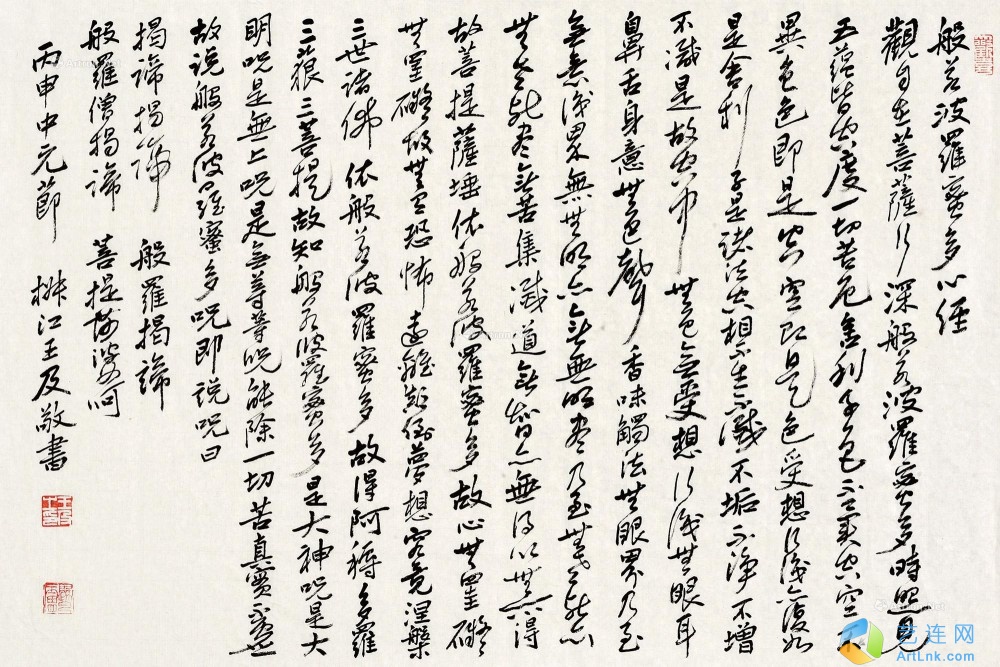 般若波羅蜜多心經
觀自在菩薩行深般若波羅蜜多時照見
五蘊皆空度一切苦厄舍利子色不異空空不
異色色即是空空即是色受想行識亦復如
是舍利子是諸法空相不生不滅不垢不淨不增
不減是故空中無色無受想行識無眼耳
鼻舌身意無色聲香味觸法無眼界乃至
無意識界無無明亦無無明盡乃至無老死亦
無老死盡無苦集滅道無智亦無得以無所得
故菩提薩埵依般若波羅蜜多故心無罣礙
無罣礙故無有恐怖遠離顛倒夢想究竟涅槃
三世諸佛依般若波羅蜜多故得阿耨多羅
三藐三菩提故知般若波羅蜜多是大神呪是大
明呪是無上呪是無等等呪能除一切苦真實不虛
故說般若波羅蜜多呪即說呪曰
揭諦揭諦 般羅揭諦
般羅僧揭諦 菩提娑婆呵
丙申中元節 椒江王及敬書
艺连网
ArtLnk.com